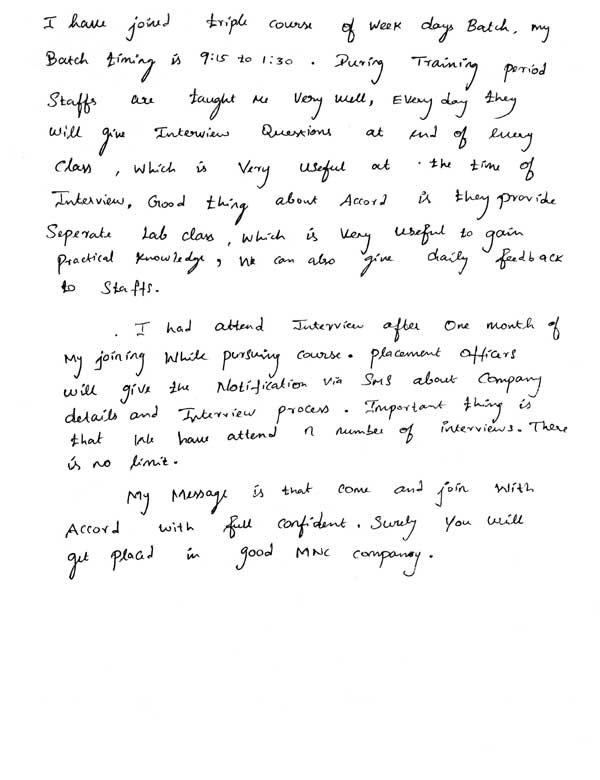 I have joined triple course of week days Batch, my
Batch timing is 9:15 to 1:30 . During Training period
Staffs are taught me very well, Every day they
will give Interview Questions at end of every
class , which is very useful at the time of
Interview, Good thing about Accord is they provide
Seperate Lab class , which is very useful to gain
practical knowledge , we can also give daily feedback
to Staffs.
. I had attend Interview after one month of
My joining while pursuing course. placement officers
will give the Notification via SMS about Company
details and Interview process . Important thing is
that we have attend n number of interviews. There
is no limit.
My Message is that come and join with
Accord with full confident . Surely you will
get placed in good MNC company .